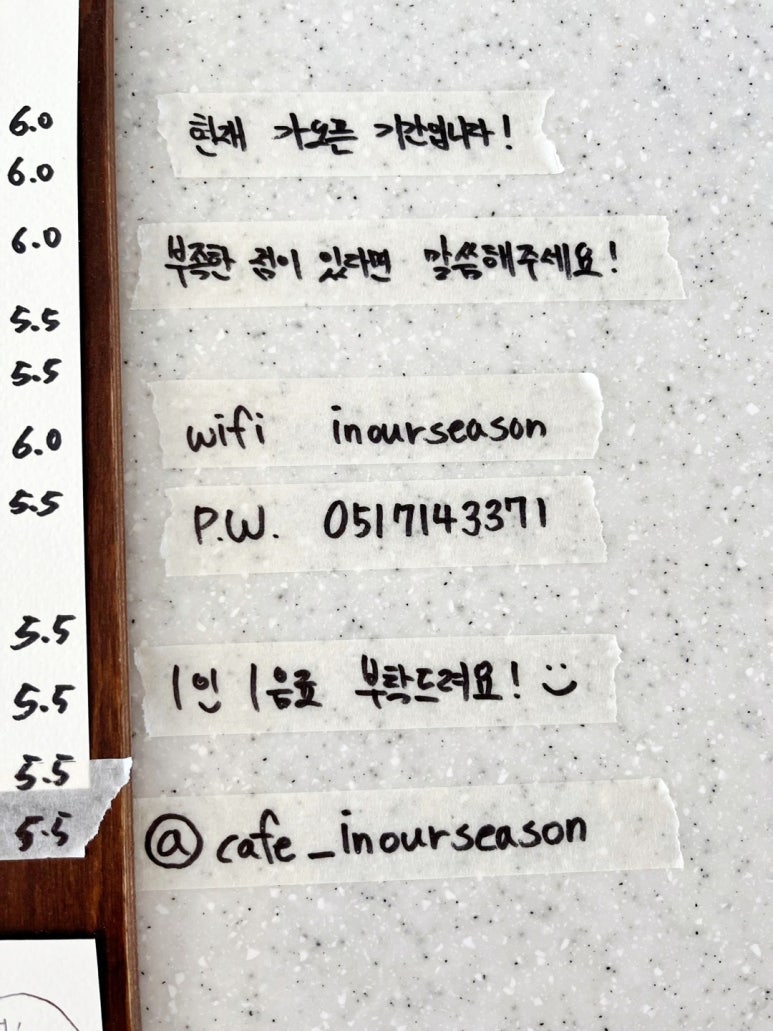 6.0
6.0
6.0
5.5
5.5
6.0
5.5
5.5
5.5
5.5
5.5
현재 가오픈 기간입니다!
부족한 점이 있다면 말씀해주세요!
wifi inourseason
P.W. 0517143371
1인 1음료 부탁드려요!
@cafe_inourseason